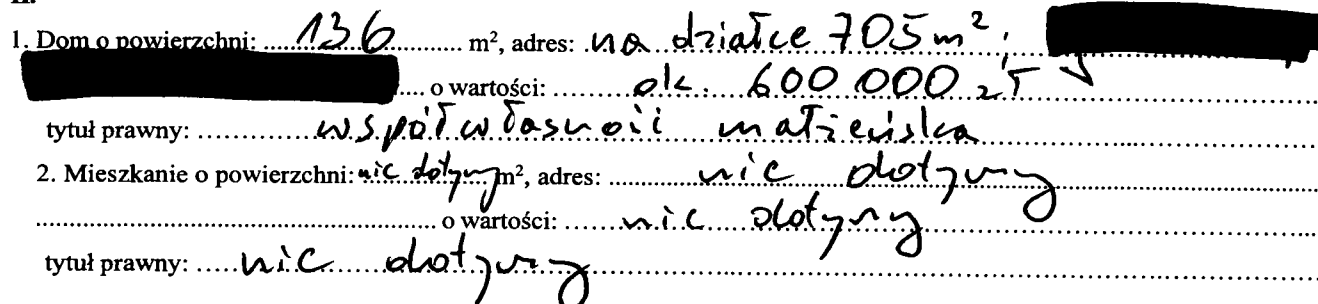 II.
1. Dom o powierzchni: 136 m², adres: na działce 705 m²,
o wartości: ok. 600 000 zł
tytuł prawny: współwłasność małżeńska
2. Mieszkanie o powierzchni: nie dotyczy m², adres: nie dotyczy
o wartości: nie dotyczy
tytuł prawny: nie dotyczy